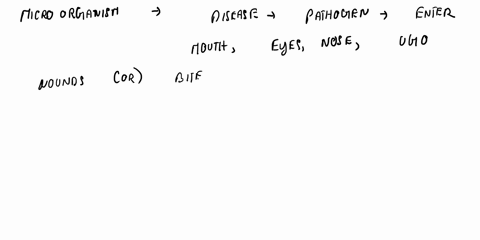 MICRO ORGANISM → DISEASE → PATHOGEN → ENTER
MOUTH, EYES, NOSE, UGO
WOUNDS (OR) BITE